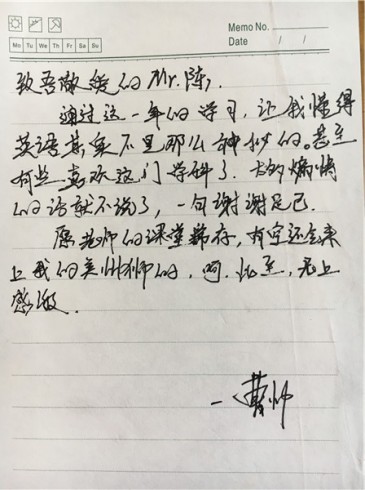 Memo No.
Mo Tu We Th Fr Sa Su
Date / /
致吾敬爱的Mr.陈,
通过这一年的学习,让我懂得
英语其实不是那么神秘的。甚至
有些喜欢这门学科了.太多煽情
的话就不说了,一句谢谢足已.
愿老师的课堂稀存,有空还会来
上我的美术师的,呵.比至,无上
感激.
一曹帅